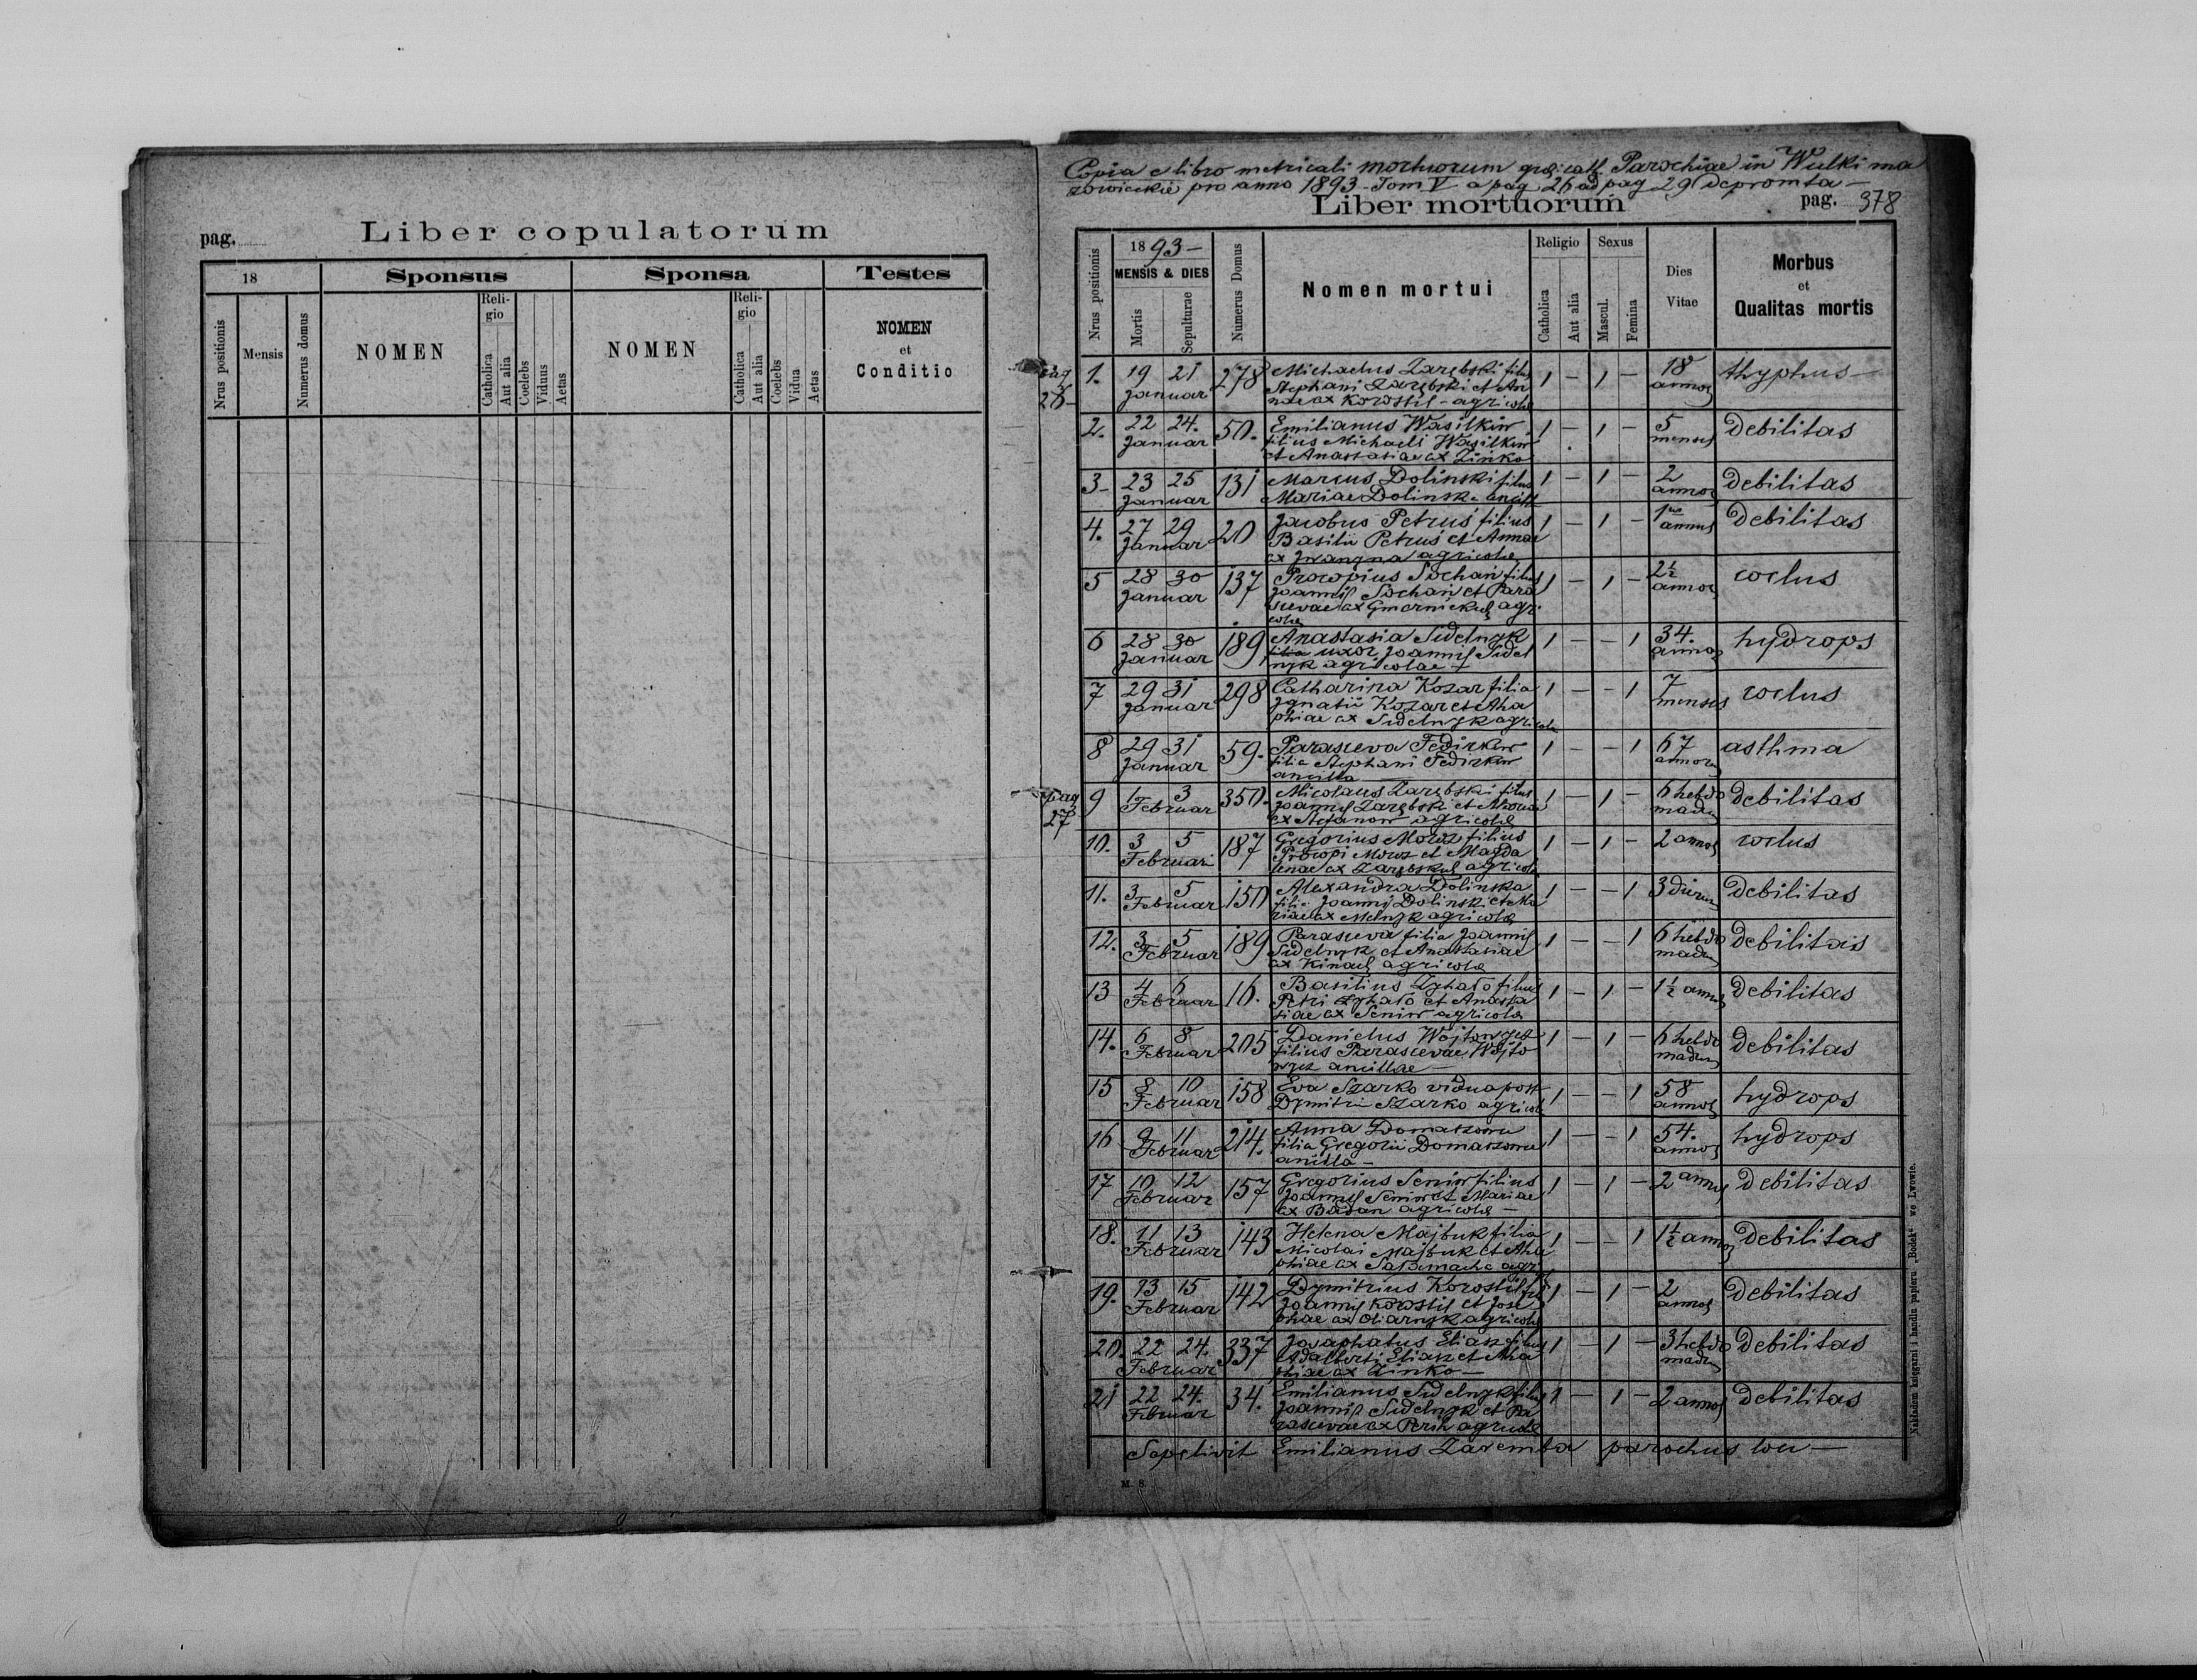 pag.
Liber copulatorum
18
Sponsus
Sponsa
Testes
Nrus positionis
Mensis
Numerus domus
NOMEN
Religio
Catholica
Aut alia
Coelebs
Viduus
Aetas
NOMEN
Religio
Catholica
Aut alia
Coelebs
Vidua
Aetas
NOMEN
et
Conditio
Copia e libro metricali mortuorum gr. cath. Parochiae in Wulki ma
zowieckie pro anno 1893 - Tom V a pag 26 ad pag 29 depromta -
Liber mortuorum
pag. 378
Nrus positionis
1893 -
MENSIS & DIES
Mortis
Sepulturae
Numerus Domus
Nomen mortui
Religio
Catholica
Aut alia
Sexus
Mascul.
Femina
Dies
Vitae
Morbus
et
Qualitas mortis
pag
26-
1. 19 21 Januar 278 Michaelus Zarębski filius
Stephani Zarębski et An
nae ex Korostil - agricolae
1 - 1 - 18 annos thyphus -
2. 22 24. Januar 50. Emilianus Wasilkiw
filius Michaeli Wasilkiw
et Anastasiae ex Zinko
1 - 1 - 5 menses debilitas
3- 23 25 Januar 131 Marcus Dolinski filius
Mariae Dolinska
1 - 1 - 2 annos debilitas
4. 27 29 Januar 20 Jacobus Petrus filius
Basilii Petrus et Annae
ex agricolae
1 - 1 - 1 annus debilitas
5 28 30 Januar 137 Procopius Sochan filius
Joannis Sochan et Para
scevae ex agri
colae
1 - 1 - 2½ annos
6 28 30 Januar 189 Anastasia Sidelnyk
filia uxor Joannis Sidel
nyk agricolae -
1 - - 1 34. annos hydrops
7 29 31 Januar 298 Catharina Kozar filia
Ignatii Kozar et Aha
phiae ex Sidelnyk agricolae
1 - - 1 7 menses
8 29 31 Januar 59. Parasceva Fedirkiw
filia Stephani Fedirkiw
ancilla
1 - - 1 67 annos asthma
pag
27
9 1 3 Februar 350. Nicolaus Zarębski filius
Joannis Zarębski et
ex Stefanow agricolae
1 - 1 - 6 hebdo
madas debilitas
10. 3 5 Februari 187 Gregorius Moroz filius
Procopi Moroz et Magda
lenae ex agricolae
1 - 1 - 2 annos
11. 3 5 Februar 150 Alexandra Dolinska
filia Joannis Dolinski et Ma
riae ex Melnyk agricolae
1 - - 1 3 debilitas
12. 3 5 Februar 189 Parasceva filia Joannis
Sidelnyk et Anastasiae
ex agricolae
1 - - 1 6 hebdo
madas debilitas
13 4 6 Februar 16. Basilius filius
Petri et Anasta
siae ex Seniw agricolae
1 - 1 - 1½ annos debilitas
14. 6 8 Februar 205 Danielus Wojtowycz
filius Parascevae Wojto
wycz ancillae -
1 - 1 - 6 hebdo
madas debilitas
15 8 10 Februar 158 Eva Szarko vidua post
Dymitri Szarko agricolae
1 - - 1 58 annos hydrops
16 9 11 Februar 214. Anna
filia Gregorii
ancilla -
1 - - 1 54. annos hydrops
17 10 12 Februar 157 Gregorius Seniw filius
Joannis Seniw et Mariae
ex Badan agricolae -
1 - 1 - 2 annos debilitas
18. 11 13 Februar 143 Helena Majbuk filia
Nicolai Majbuk et Aha
phiae ex
1 - - 1 1½ annos debilitas
19. 13 15 Februar 142 Dymitrius Korostil filius
Joannis Korostil et Jose
phae ex Oliarnyk agricolae
1 - 1 - 2 annos debilitas
20. 22 24. Februar 337 Josaphatus Eliasz filius
Adalberti Eliasz et Aha
phiae ex Zinko -
1 - 1 - 3 hebdo
madas debilitas
21 22 24. Februar 34. Emilianus Sidelnyk filius
Joannis Sidelnyk et Pa
rascevae ex agricolae
1 - 1 - 2 annos debilitas
Sepelivit Emilianus Zaremba parochus loci -
M. 8.
Nakładem księgarni i handlu papieru „Bodek“ we Lwowie.